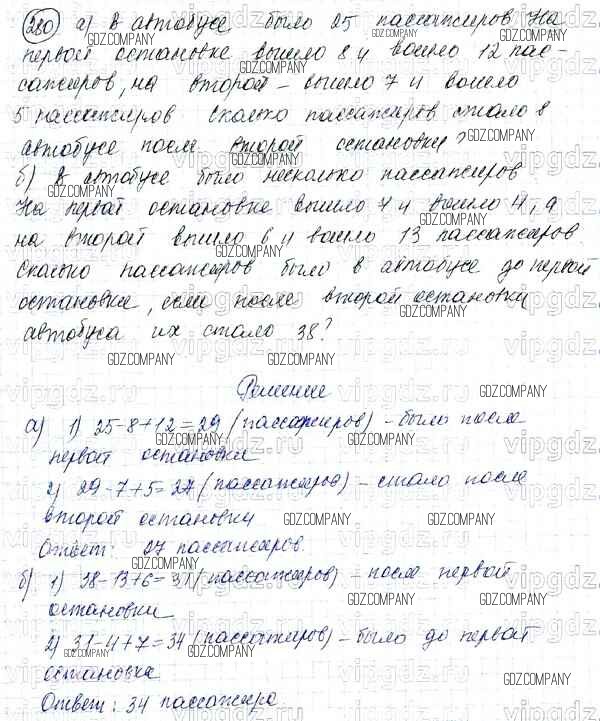 280) а) в автобусе было 25 пассажиров На
первой остановке вышло 8 и вошло 12 пас-
сажиров, на второй – вышло 7 и вошло
5 пассажиров Сколько пассажиров стало в
автобусе после второй остановки?
б) в автобусе было несколько пассажиров
На первой остановке вышло 7 и вошло 4, а
на второй вышло 6 и вошло 13 пассажиров.
Сколько пассажиров было в автобусе до первой
остановки, если после второй остановки
автобуса их стало 38?
Решение
а) 1) 25-8+12=29 (пассажиров) – было после
первой остановки
2) 29-7+5=27 (пассажиров) – стало после
второй остановки
Ответ: 27 пассажиров.
б) 1) 38-13+6=31 (пассажиров) – после первой
остановки
2) 31-4+7=34 (пассажиров) – было до первой
остановки
Ответ: 34 пассажира
GDZ.COMPANY
vipgdz.ru